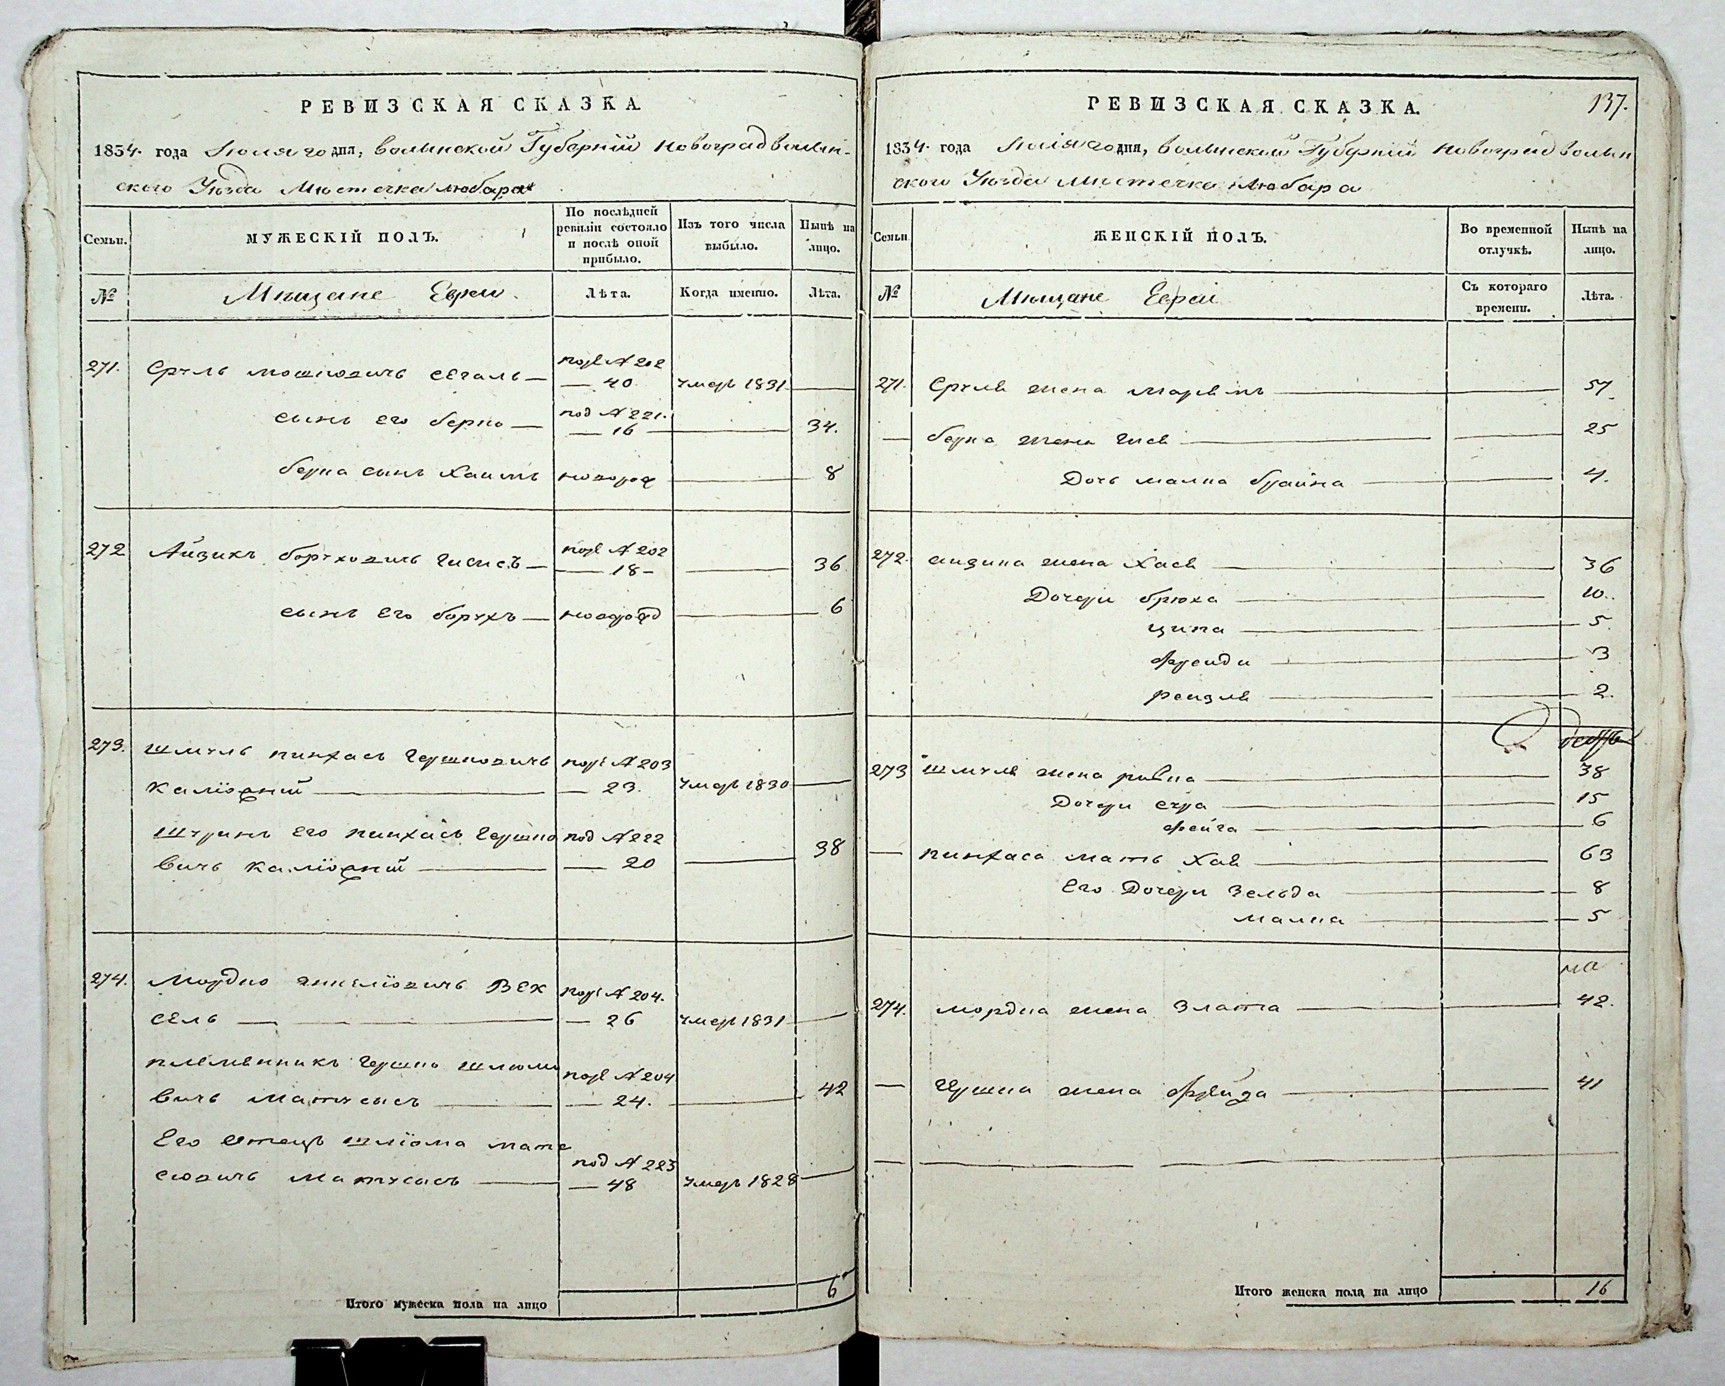 РЕВИЗСКАЯ СКАЗКА.
1834. года Июля 20 дня, волынской Губерніи Новоградволын-
ского Уѣзда Мѣстечка Любара
Семьи.
МУЖЕСКІЙ ПОЛЪ.
По послѣдней ревизіи состояло и послѣ оной прибыло.
Изъ того числа выбыло.
Нынѣ на лицо.
№
Мѣщане Евреи.
Лѣта.
Когда именно.
Лѣта.
271. Сруль мошковичь сегаль — под № 202 — 40 умеръ 1831 —
сынъ его берко — под № 221. — 16 — 34.
берка сынъ Хаимъ новорож — 8
272 Айзикъ боруховичь — под № 202 — 18 — 36
сынъ его борухъ — новорожд — 6
273. шмуль пинхасъ Гершковичь под № 203
— 23. умеръ 1830 —
шуринъ его пинхасъ Гершко под № 222
вичь — 20 — 38
274. Мордко Век под № 204.
сель — 26 умеръ 1831 —
племенникъ Гершко шлиомо под № 204
вичь матусисъ — 24. — 42
Его отецъ шліома мату под № 223
совичь матусисъ — 48 умеръ 1828 —
Итого мужеска пола на лицо 6
РЕВИЗСКАЯ СКАЗКА. 137.
1834. года Июля 20 дня, волынской Губерніи Новоградволын
ского Уѣзда Мѣстечка Любара
Семьи
ЖЕНСКІЙ ПОЛЪ.
Во временной отлучкѣ.
Нынѣ на лицо.
№
Мѣщане Евреи
Съ котораго времени.
Лѣта.
271. Сруля жена Марямъ — 57
— берка жена — 25
Дочь малка брайна — 4.
272. айзика жена Хася — 36
Дочери брюха — 10.
ципа — 5
фрейди — 3
рейзля — 2.
273 шмуля жена ривка — 38
Дочери сура — 15
фейга — 6
— пинхаса мать Хая — 63
Его Дочери Зельда — 8
малка — 5
274. мордка жена Злата — 42.
— Гершка жена фрейда — 41
Итого женска пола на лицо 16